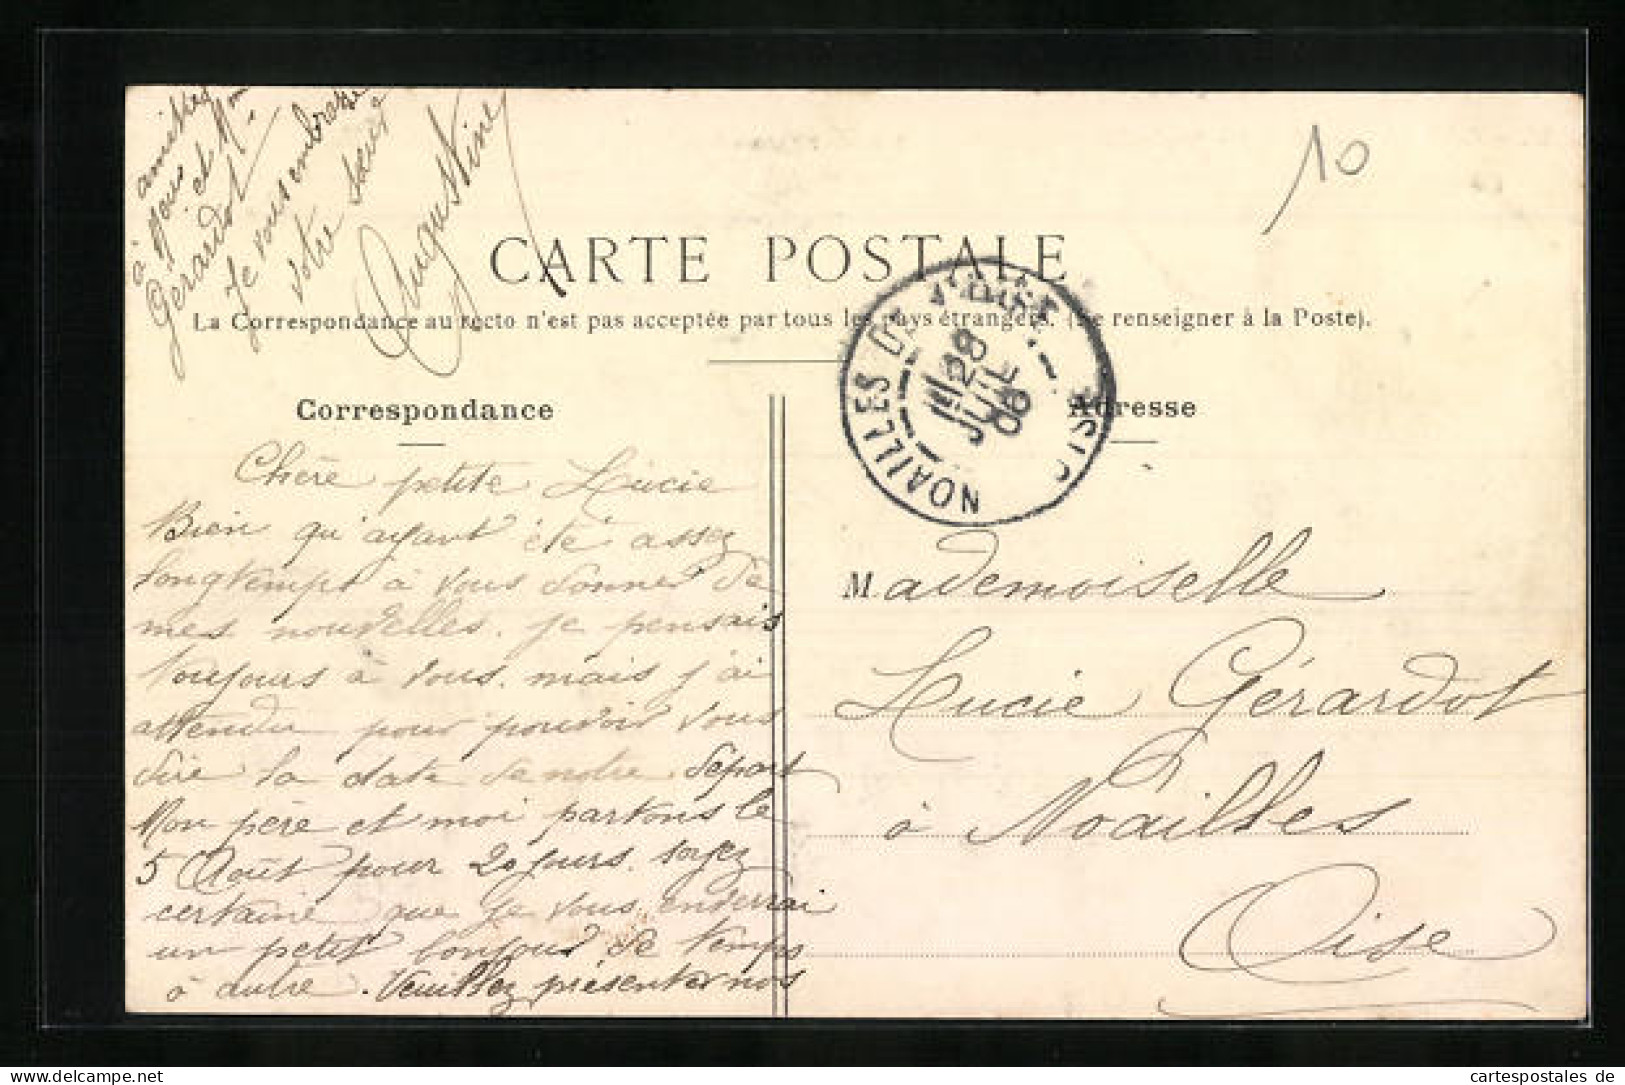 amitiés
à vous et Mme
Gérardot
Je vous embrasse
votre sœur
Augustine
10
CARTE POSTALE
La Correspondance au recto n'est pas acceptée par tous les pays étrangers. (Se renseigner à la Poste).
NOAILLES OISE
28
JUIL
06
Correspondance
Adresse
Chère petite Lucie
Bien qu'ayant été assez
longtemps à vous donner de
mes nouvelles. je pensais
toujours à vous. mais j'ai
attendu pour pouvoir vous
dire la date de notre départ
Mon père et moi partons le
5 Août pour 20 jours. soyez
certaine que je vous enverrai
un petit bonjour de temps
à autre. Veuillez présenter nos
Mademoiselle
Lucie Gérardot
à Noailles
Oise
delcampe.net
cartespostales de